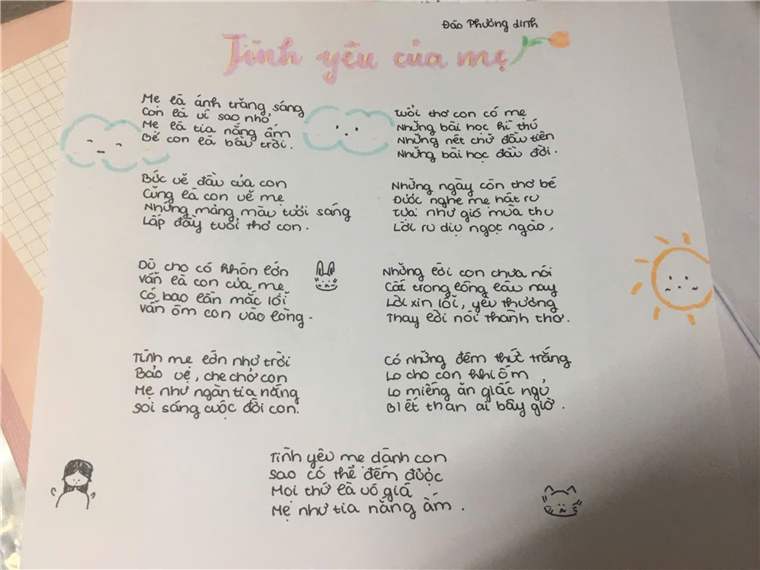 Đào Phương Dinh
Tình yêu của mẹ
Mẹ là ánh trăng sáng
Con là vì sao nhỏ
Mẹ là tia nắng ấm
Bé con là bầu trời.
Bức vẽ đầu của con
Cũng là con vẽ mẹ
Những mảng màu tươi sáng
Lấp đầy tuổi thơ con.
Dù cho có khôn lớn
Vẫn là con của mẹ
Có bao lần mắc lỗi
Vẫn ôm con vào lòng.
Tình mẹ lớn như trời
Bảo vệ, che chở con
Mẹ như ngàn tia nắng
Soi sáng cuộc đời con.
Tuổi thơ con có mẹ
Những bài học kì thú
Những nét chữ đầu tiên
Những bài học đầu đời.
Những ngày còn thơ bé
Được nghe mẹ hát ru
Tựa như gió mùa thu
Lời ru dịu ngọt ngào,
Những lời con chưa nói
Cất trong lòng lâu nay
Lời xin lỗi, yêu thương
Thay lời nói thành thơ.
Có những đêm thức trắng
Lo cho con khi ốm
Lo miếng ăn giấc ngủ
Biết than ai bây giờ.
Tình yêu mẹ dành con
Sao có thể đếm được
Mọi thứ là vô giá
Mẹ như tia nắng ấm.